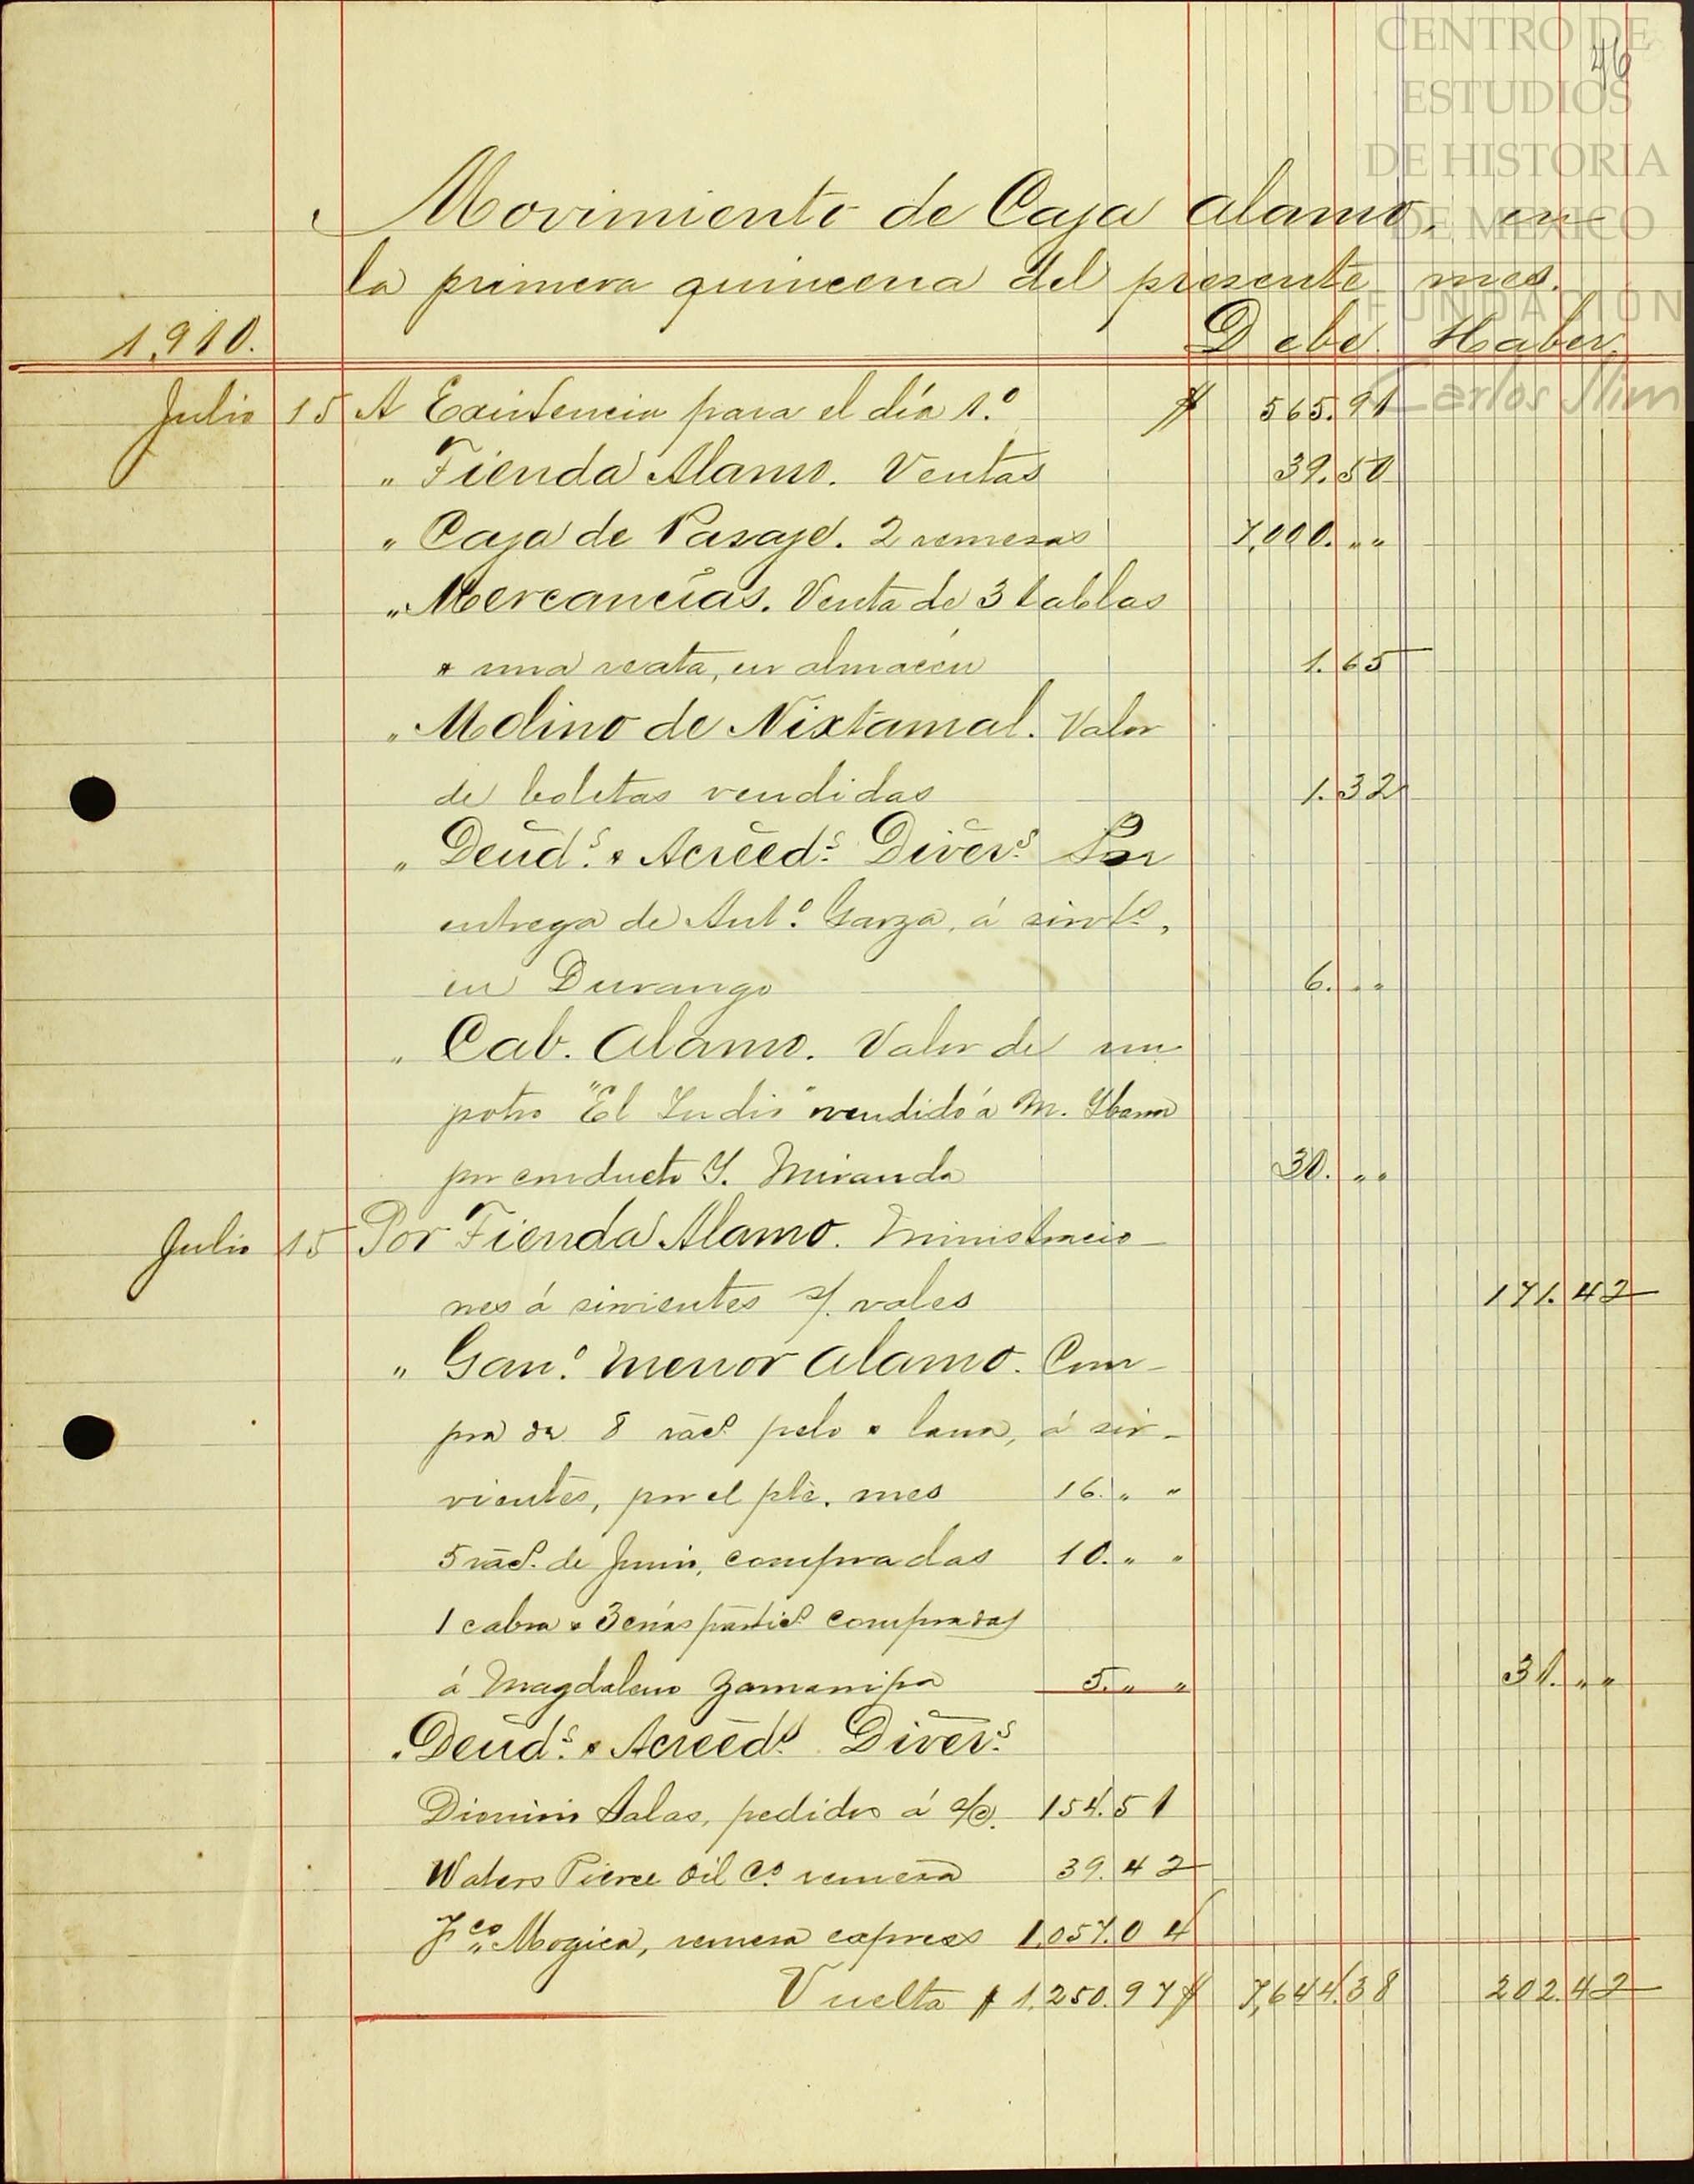 CENTRO DE
46
ESTUDIOS
DE HISTORIA
DE MÉXICO
FUNDACIÓN
Carlos Slim
Movimiento de Caja Alamo, en
la primera quincena del presente mes.
1,910. Debe Haber
Julio 15 A Existencia para el día 1.º $ 565.91
" Tienda Alamo. Ventas 39.50
" Caja de Pasaje. 2 remesas 7,000. " "
" Mercancías. Venta de 3 tablas
y una reata, en almacén 1.65
" Molino de Nixtamal. Valor
de boletas vendidas 1.32
" Deud.s y Acreed.s Divers.s Por
entrega de Ant.º Garza, á sirvtes,
en Durango 6. " "
" Cab. Alamo. Valor de un
potro "El Indio" vendido á M. Ibarra
por conducto Y. Miranda 30. " "
Julio 15 Por Tienda Alamo. Ministracio-
nes á sirvientes s/. vales 171.42
" Gan.º menor Alamo. Com-
pra de 8 racs pelo y lana, á sir-
vientes, por el pte. mes 16. " "
5 racs. de Junio, compradas 10. " "
1 cabra y 3 crías partics compradas
á Magdaleno Zamaripa 5. " " 31. " "
" Deud.s y Acreed.s Divers.s
Dionicio Salas, pedidos á s/c. 154.51
Waters Pierce Oil Cº remesa 39.42
Fco. Mogica, remesa express 1,057.04
Vuelta $ 1,250.97 $ 7,644.38 202.42